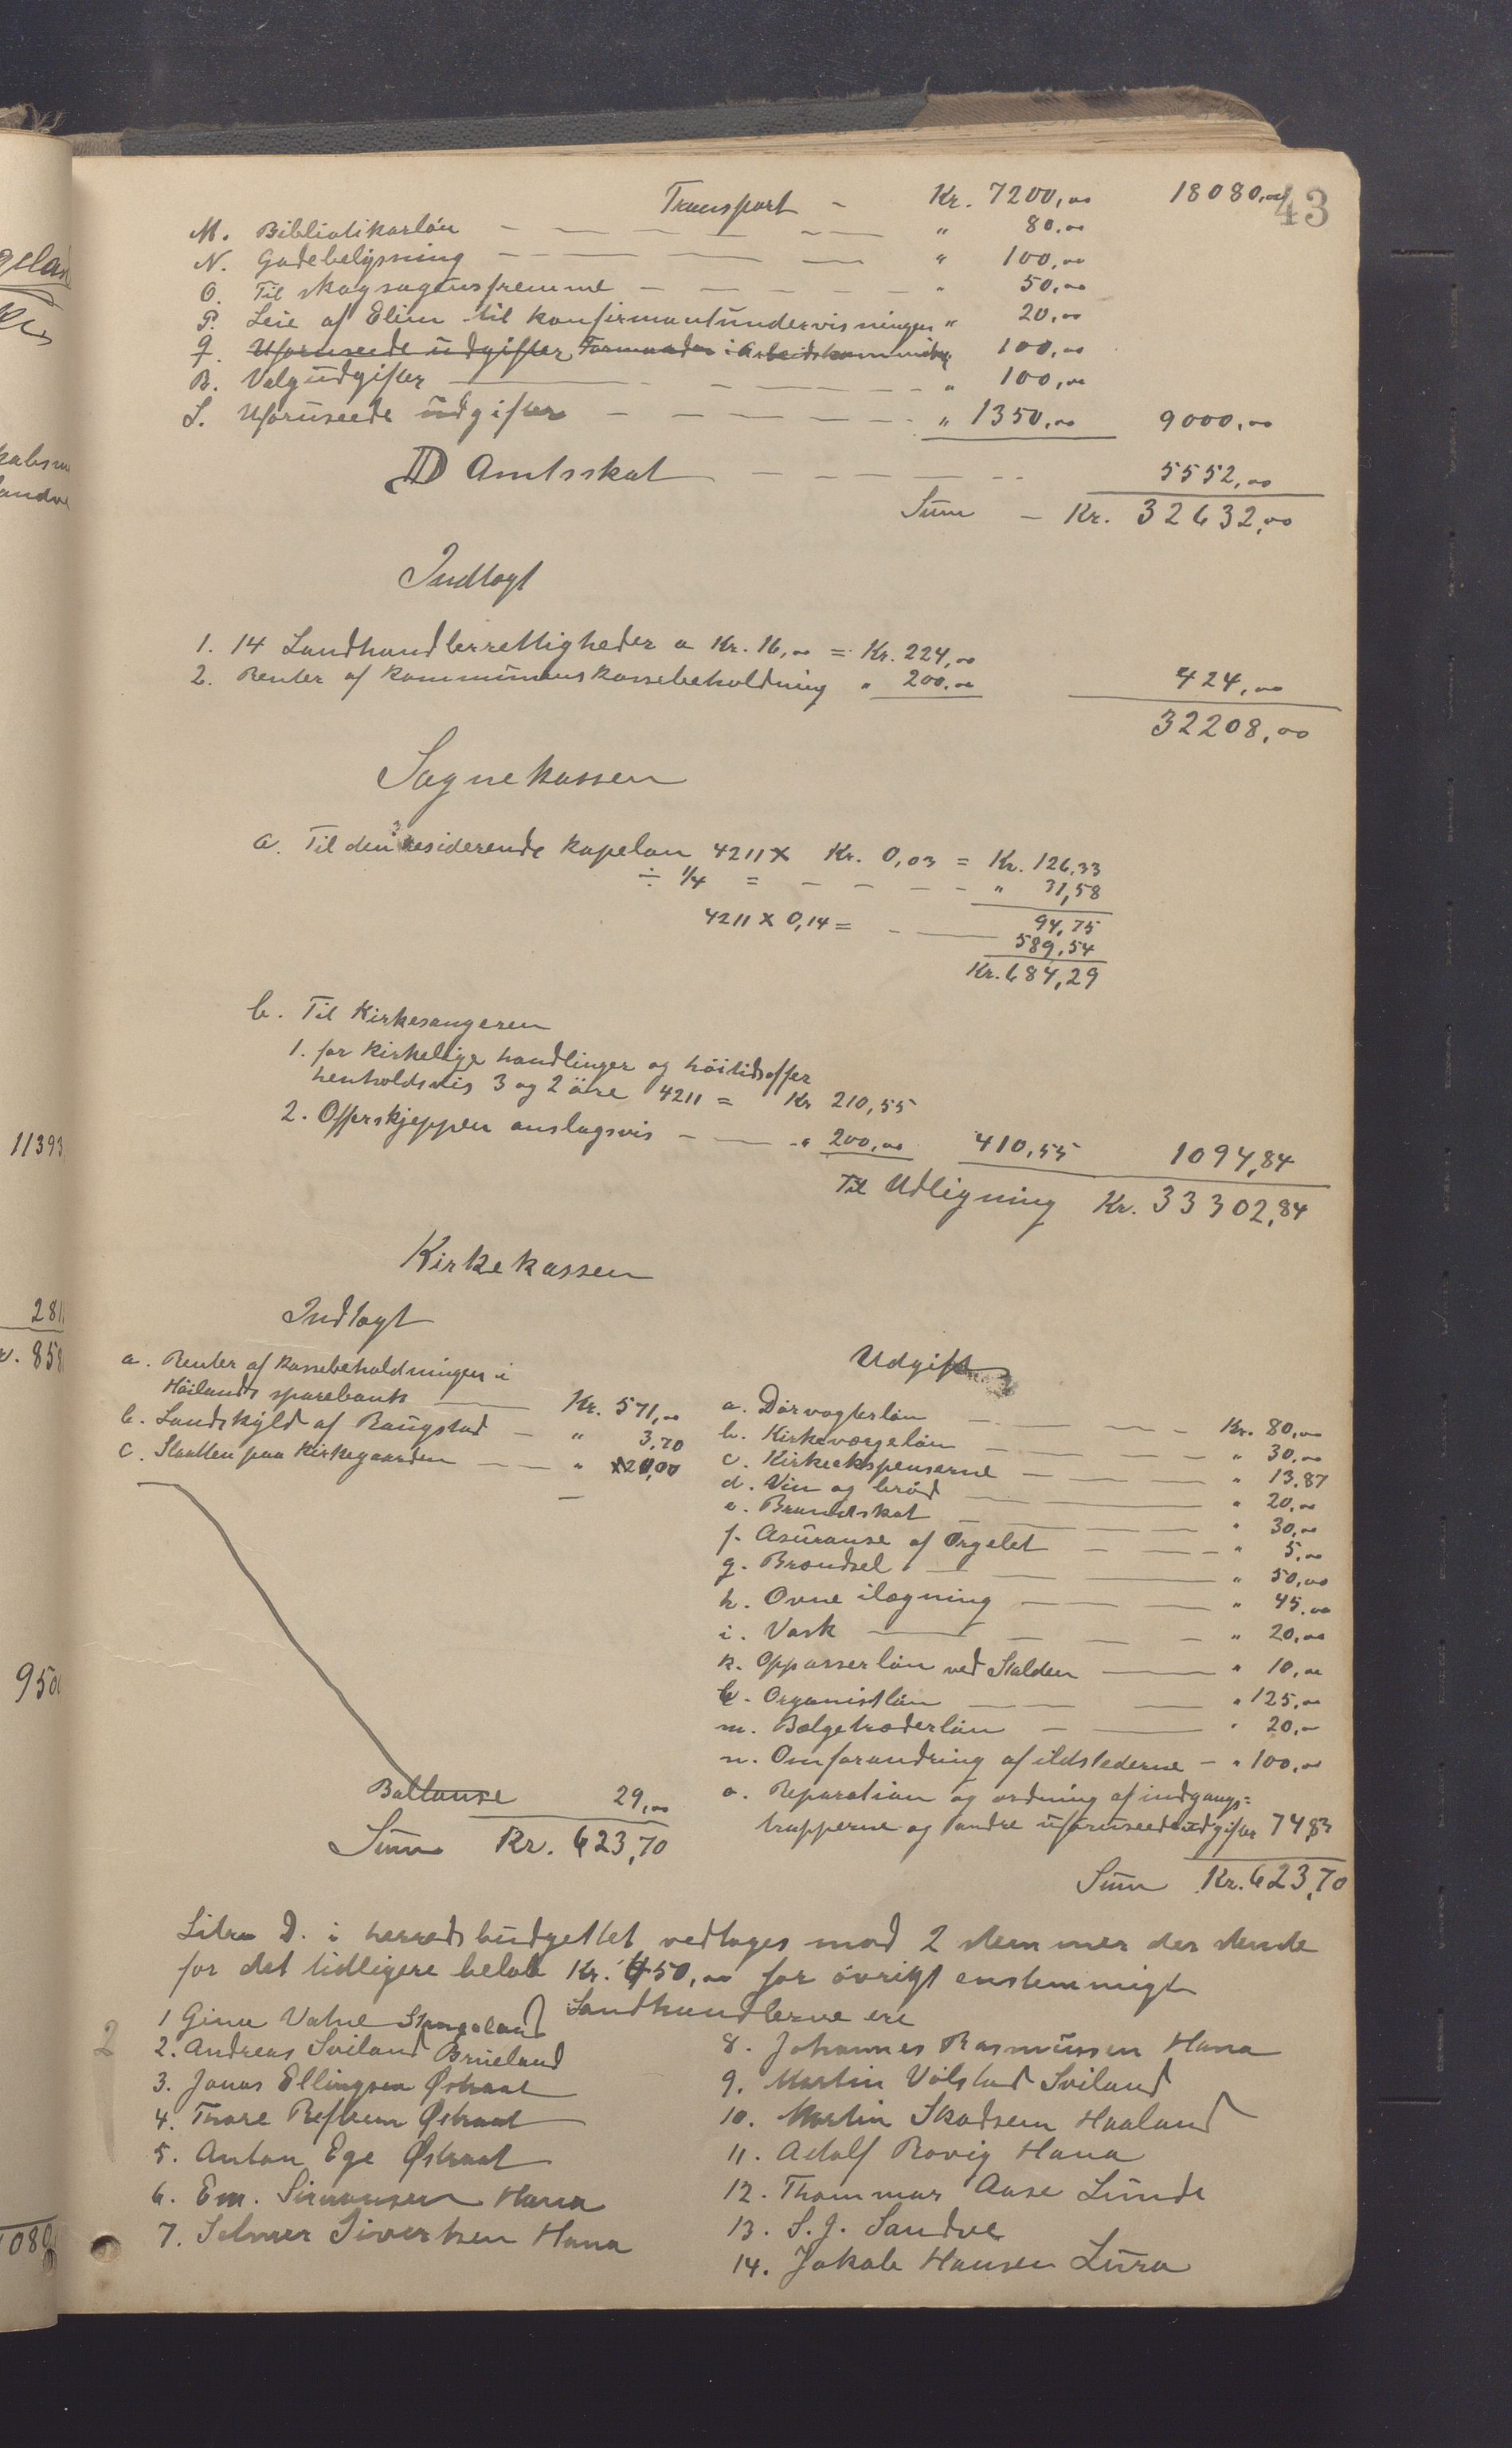 43
Transport - Kr. 7200,00 18080,00
M. Bibliotikarløn - - - - - " 80,00
N. Gadebelysning - - - - - " 100,00
O. Til skogsagens fremme - - - - - " 50,00
P. Leie af Elim til konfirmantundervisningen " 20,00
Q. Uforuseede udgifter Formanden i Arbeidskommisj " 100,00
R. Valgudgifter - - - - " 100,00
S. Uforuseede udgifter - - - - - " 1350,00 9000,00
D Amtsskat - - - - 5552,00
Sum - Kr. 32632,00
Indtægt
1. 14 Landhandlerrettigheder a Kr. 16,00 = Kr. 224,00
2. Renter af kommunens kassebeholdning " 200,00 424,00
32208,00
Sognekassen
a. Til den residerende kapelan 4211 X Kr. 0,03 = Kr. 126,33
÷ 1/4 = - - - - " 31,58
94,75
4211 X 0,14 = - - 589,54
Kr. 684,29
b. Til Kirkesangeren
1. for kirkelige handlinger og høitidsoffer
henholdsvis 3 og 2 øre 4211 = Kr 210,55
2. Offerskjeppen anslagsvis - - " 200,00 410,55 1094,84
Til Udligning Kr. 33302,84
Kirkekassen
Indtægt
a. Renter af kassebeholdningen i
Höilands sparebank - Kr. 571,00
b. Landskyld af Raugstad - " 3,70
c. Slaatten paa kirkegaarden - - " 20,00
Ballanse 29,00
Sum Kr. 623,70
Udgift
a. Dørvogterløn - - - - Kr. 80,00
b. Kirkeværgeløn - - - - " 30,00
c. Kirkeekspenserne - - - " 13,87
d. Vin og brød - - - " 20,00
e. Brandskat - - - - " 30,00
f. Asuranse af Orgelet - - - " 5,00
g. Brændsel - - - " 50,00
h. Ovne ilægning - - - " 45,00
i. Vask - - - - " 20,00
k. Oppasserløn ved Stalden - " 10,00
l. Organistløn - - - " 125,00
m. Bælgetræderløn - - " 20,-
n. Omforandring af ildstederne - " 100,00
o. Reparation og ordning af indgangs=
trapperne og andre uforuseede udgifter 74,83
Sum Kr. 623,70
Litra D. i herredsbudgettet vedtages mod 2 stemmer der stemte
for det tidligere beløb Kr. 450,00 for øvrigt enstemmigt
Landhandlerne ere
1 Gina Vatne Stangeland
2. Andreas Sviland Brueland
3. Jonas Ellingsen Østraat
4. Thore Refheim Østraat
5. Anton Ege Østraat
6. Em. Simonsen Hana
7. Selmer Sivertsen Hana
8. Johannes Rasmussen Hana
9. Martin Vølstad Sviland
10. Martin Skadsem Haaland
11. Adolf Rovig Hana
12. Thommas Aase Lunde
13. S. J. Sandve
14. Jakob Hansen Lura
2